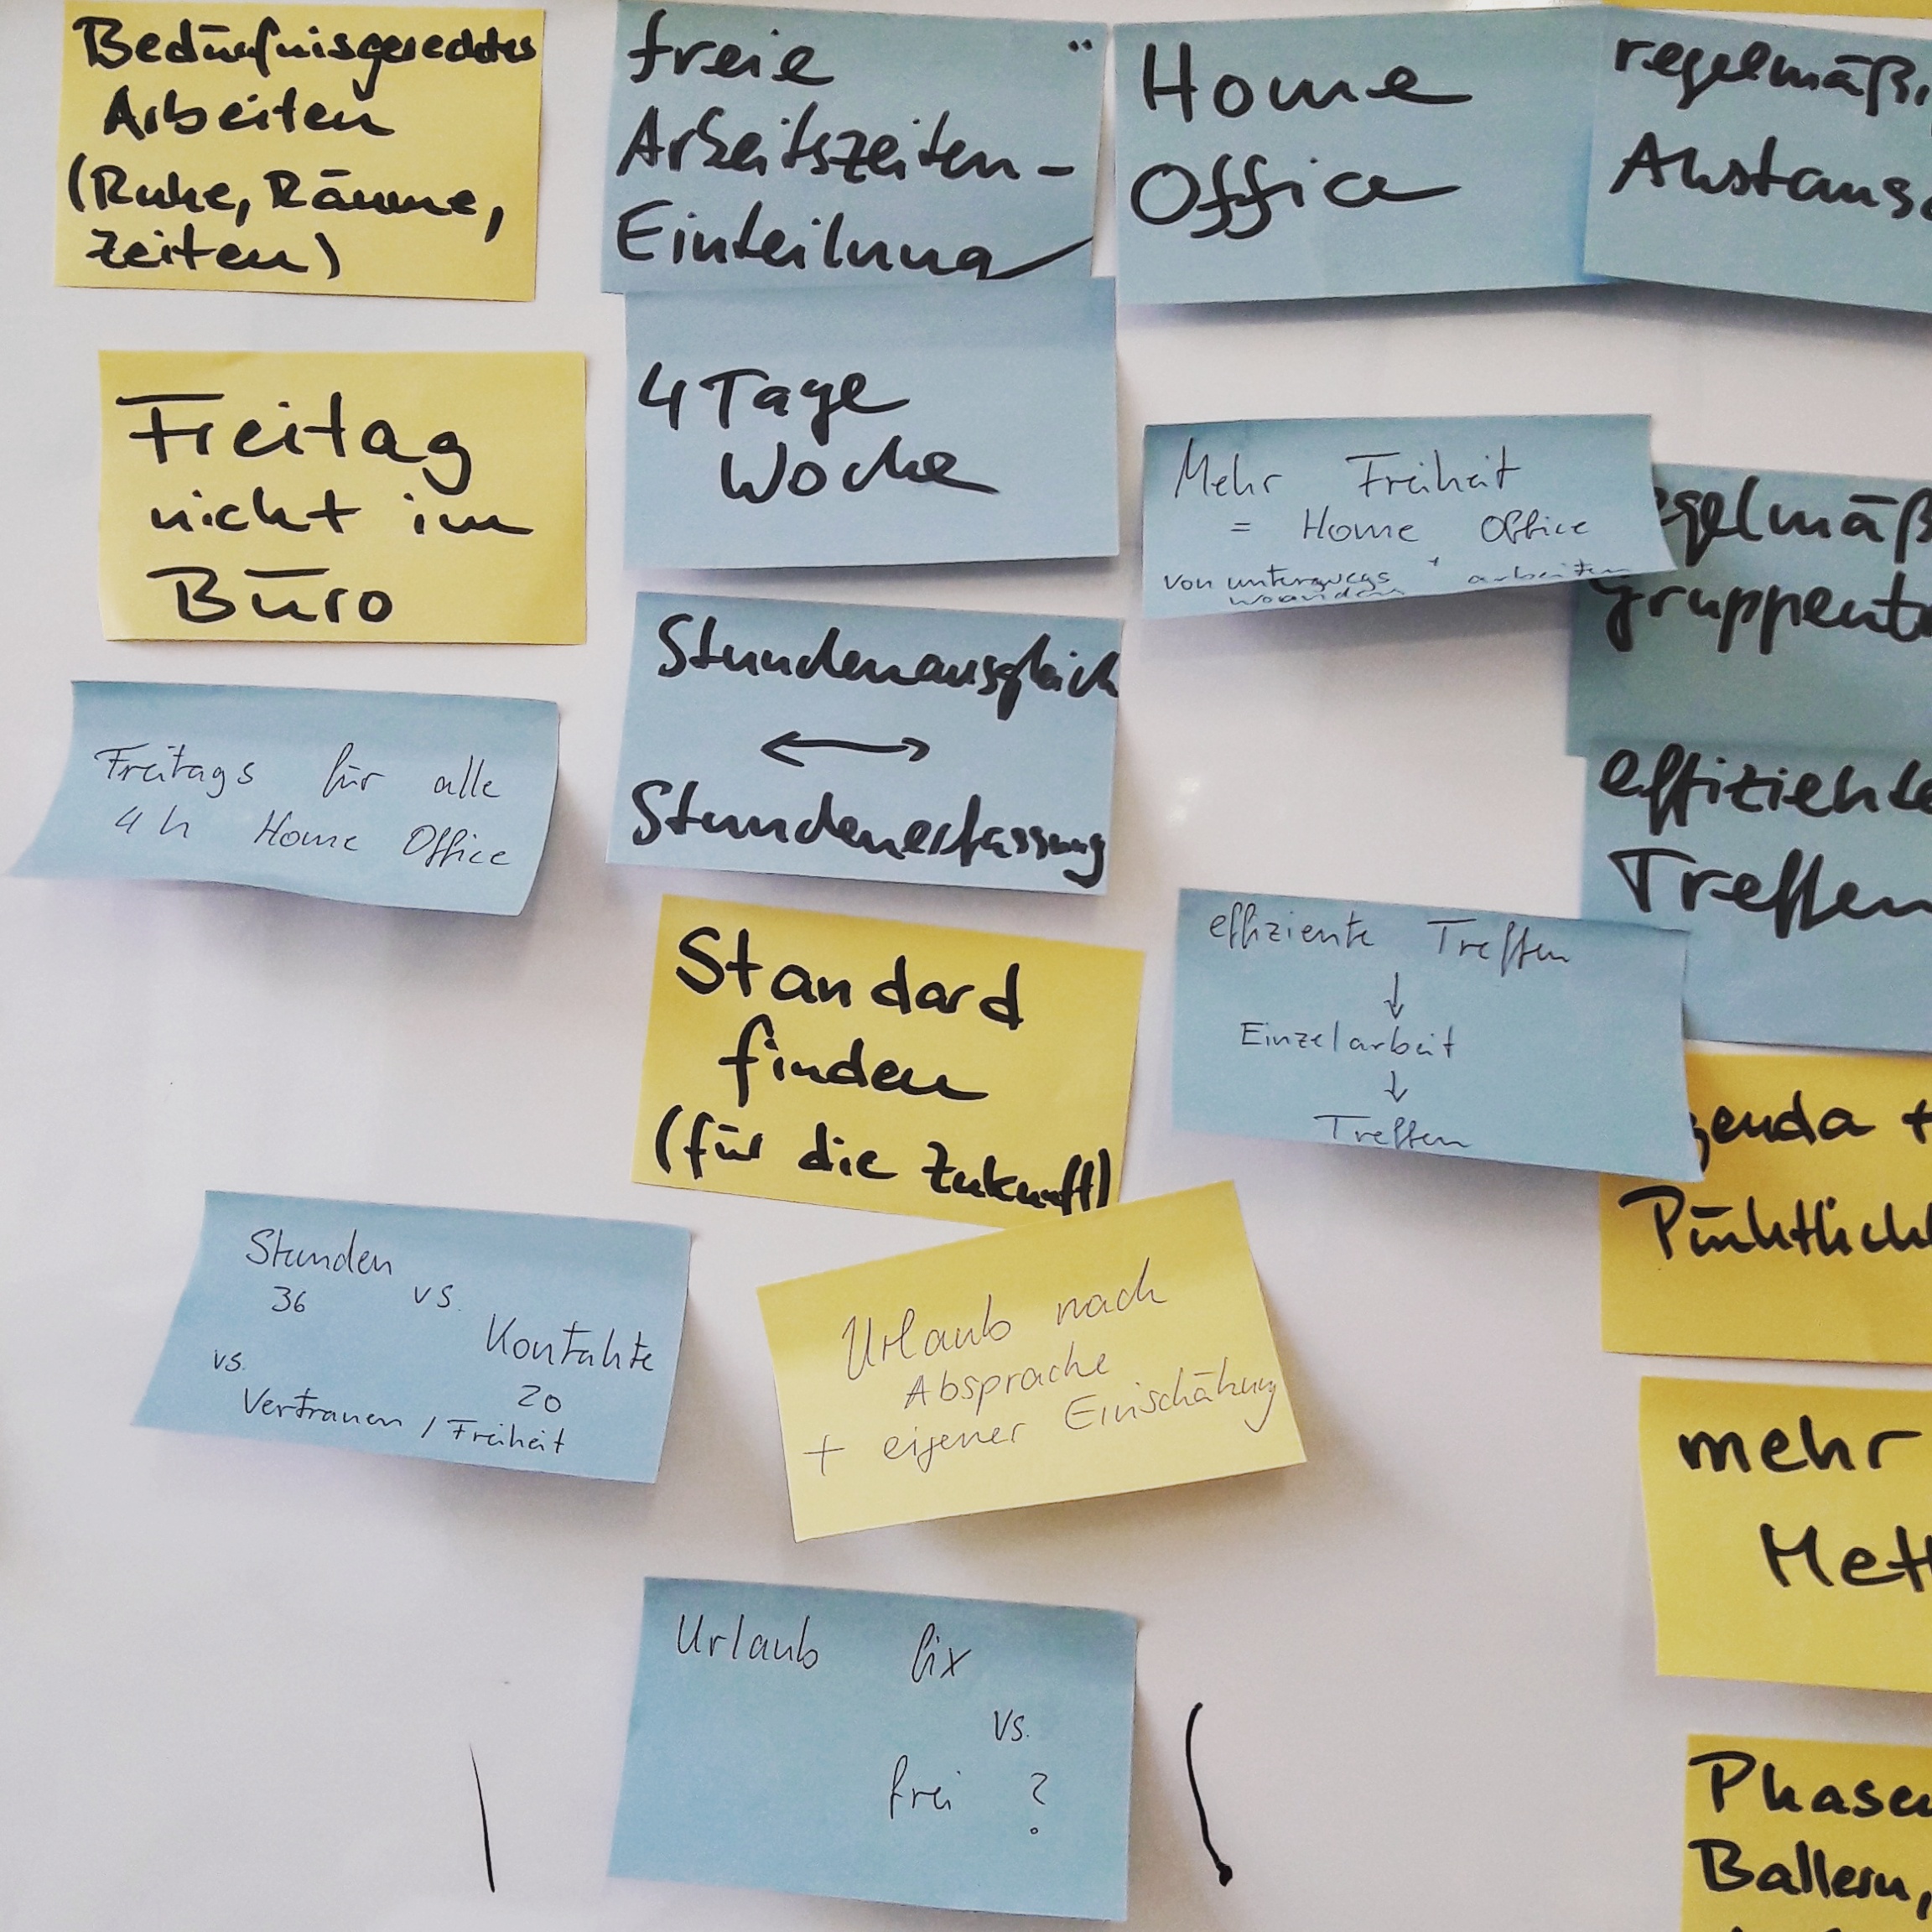 Bedürfnisgerechtes
Arbeiten
(Ruhe, Räume,
Zeiten)
freie
Arbeitszeiten-
Einteilung
Home
Office
regelmäß
Austaus
Freitag
nicht im
Büro
4 Tage
Woche
Mehr Freiheit
= Home Office
von unterwegs + arbeiten
woanders
egelmäß
gruppent
Freitags für alle
4 h Home Office
Stundenausgleich
↔
Stundenerfassung
effiziente
Treffen
Standard
finden
(für die Zukunft)
effiziente Treffen
↓
Einzelarbeit
↓
Treffen
genda +
Pünktlichk
Stunden
36 vs.
Kontakte
vs. 20
Vertrauen / Freiheit
Urlaub nach
Absprache
+ eigener Einschätzung
mehr
Urlaub fix
vs.
frei ?
Phasen
Ballern,